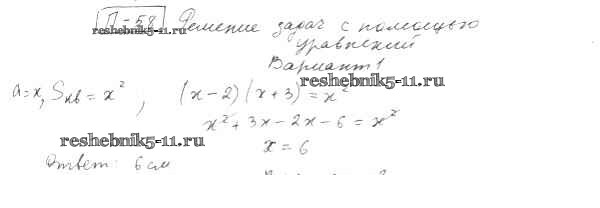 П-58 Решение задач с помощью
reshebnik5-11.ru
уравнений
Вариант 1
reshebnik5-11.ru
a=x, Sкв = x², (x-2)(x+3) = x²
x²+3x-2x-6 = x²
reshebnik5-11.ru
x = 6
Ответ: 6 см